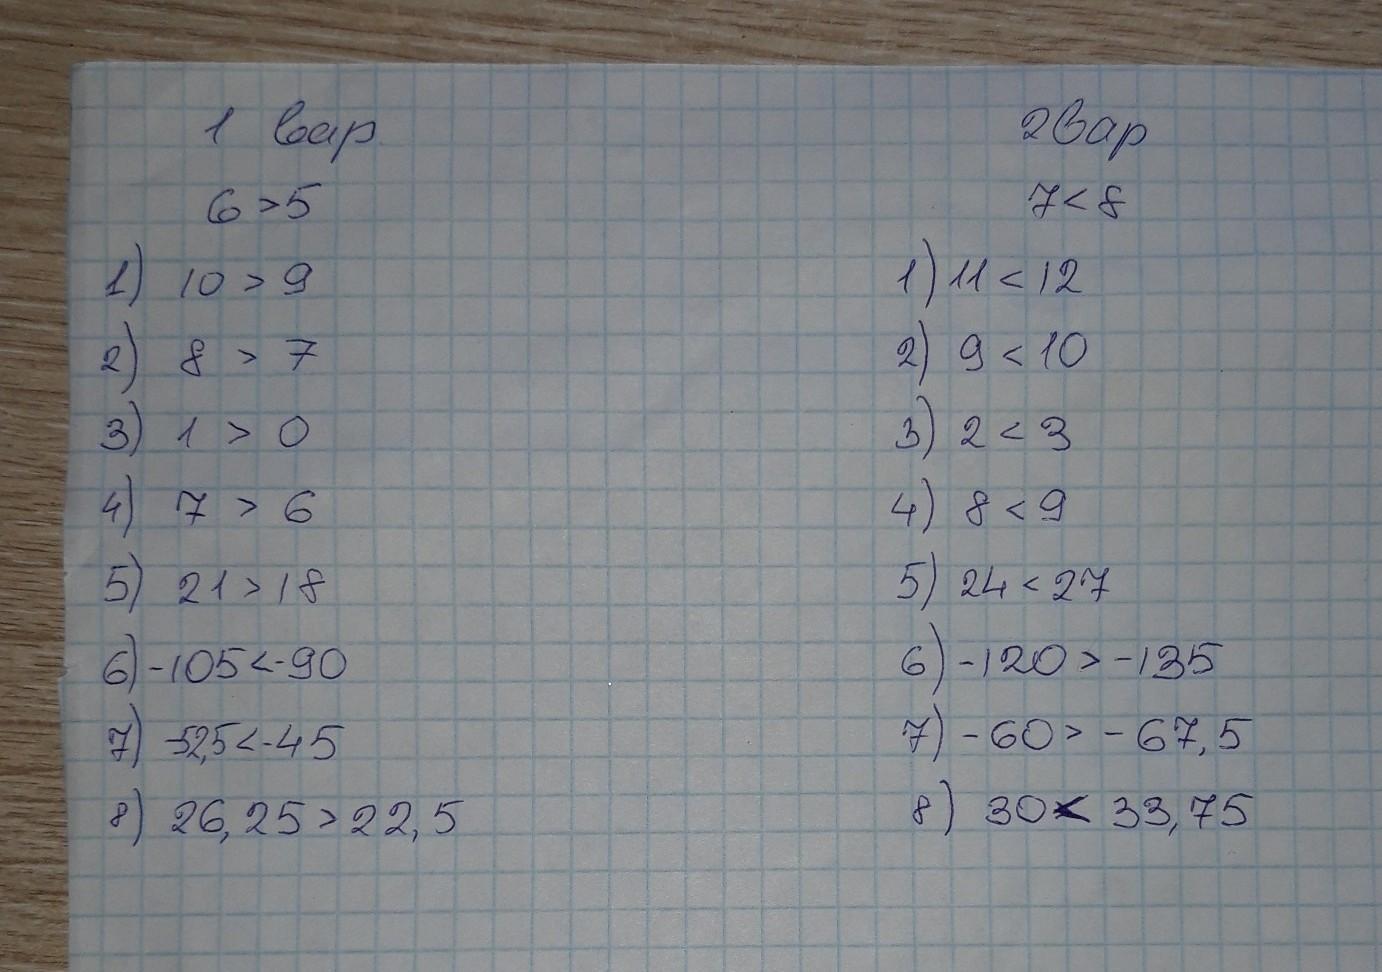 1 вар.
6 > 5
1) 10 > 9
2) 8 > 7
3) 1 > 0
4) 7 > 6
5) 21 > 18
6) -105 < -90
7) -52,5 < -45
8) 26,25 > 22,5
2 вар
7 < 8
1) 11 < 12
2) 9 < 10
3) 2 < 3
4) 8 < 9
5) 24 < 27
6) -120 > -135
7) -60 > -67,5
8) 30 < 33,75